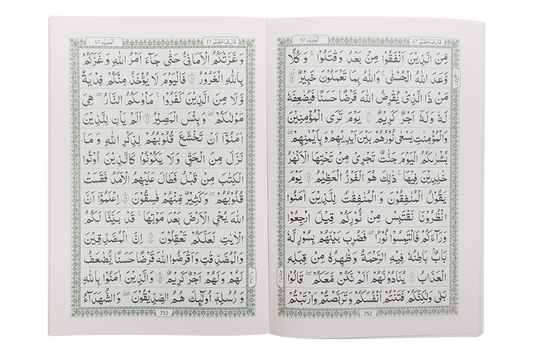 قال فما خطبكم ٢٧
الحديد ٥٧
مِّنَ الَّذِیْنَ اَنْفَقُوْا مِنْۢ بَعْدُ وَقٰتَلُوْا ؕ وَكُلًّا
وَّعَدَ اللّٰهُ الْحُسْنٰی ؕ وَاللّٰهُ بِمَا تَعْمَلُوْنَ خَبِیْرٌ
مَنْ ذَا الَّذِیْ یُقْرِضُ اللّٰهَ قَرْضًا حَسَنًا فَیُضٰعِفَهٗ
لَهٗ وَلَهٗۤ اَجْرٌ كَرِیْمٌ یَوْمَ تَرَی الْمُؤْمِنِیْنَ
وَالْمُؤْمِنٰتِ یَسْعٰی نُوْرُهُمْ بَیْنَ اَیْدِیْهِمْ وَبِاَیْمَانِهِمْ
بُشْرٰىكُمُ الْیَوْمَ جَنّٰتٌ تَجْرِیْ مِنْ تَحْتِهَا الْاَنْهٰرُ
خٰلِدِیْنَ فِیْهَا ؕ ذٰلِكَ هُوَ الْفَوْزُ الْعَظِیْمُ یَوْمَ
یَقُوْلُ الْمُنٰفِقُوْنَ وَالْمُنٰفِقٰتُ لِلَّذِیْنَ اٰمَنُوا
انْظُرُوْنَا نَقْتَبِسْ مِنْ نُّوْرِكُمْ ۚ قِیْلَ ارْجِعُوْا
وَرَآءَكُمْ فَالْتَمِسُوْا نُوْرًا ؕ فَضُرِبَ بَیْنَهُمْ بِسُوْرٍ لَّهٗ
بَابٌ ؕ بَاطِنُهٗ فِیْهِ الرَّحْمَةُ وَظَاهِرُهٗ مِنْ قِبَلِهِ
الْعَذَابُ یُنَادُوْنَهُمْ اَلَمْ نَكُنْ مَّعَكُمْ ؕ قَالُوْا
بَلٰی وَلٰكِنَّكُمْ فَتَنْتُمْ اَنْفُسَكُمْ وَتَرَبَّصْتُمْ وَارْتَبْتُمْ
752
قال فما خطبكم ٢٧
الحديد ٥٧
وَغَرَّتْكُمُ الْاَمَانِیُّ حَتّٰی جَآءَ اَمْرُ اللّٰهِ وَغَرَّكُمْ
بِاللّٰهِ الْغَرُوْرُ فَالْیَوْمَ لَا یُؤْخَذُ مِنْكُمْ فِدْیَةٌ
وَّلَا مِنَ الَّذِیْنَ كَفَرُوْا ؕ مَاْوٰىكُمُ النَّارُ ؕ هِیَ
مَوْلٰىكُمْ ؕ وَبِئْسَ الْمَصِیْرُ اَلَمْ یَاْنِ لِلَّذِیْنَ
اٰمَنُوْۤا اَنْ تَخْشَعَ قُلُوْبُهُمْ لِذِكْرِ اللّٰهِ وَمَا
نَزَلَ مِنَ الْحَقِّ ۙ وَلَا یَكُوْنُوْا كَالَّذِیْنَ اُوْتُوا
الْكِتٰبَ مِنْ قَبْلُ فَطَالَ عَلَیْهِمُ الْاَمَدُ فَقَسَتْ
قُلُوْبُهُمْ ؕ وَكَثِیْرٌ مِّنْهُمْ فٰسِقُوْنَ اِعْلَمُوْۤا اَنَّ
اللّٰهَ یُحْیِ الْاَرْضَ بَعْدَ مَوْتِهَا ؕ قَدْ بَیَّنَّا لَكُمُ
الْاٰیٰتِ لَعَلَّكُمْ تَعْقِلُوْنَ اِنَّ الْمُصَّدِّقِیْنَ
وَالْمُصَّدِّقٰتِ وَاَقْرَضُوا اللّٰهَ قَرْضًا حَسَنًا یُّضٰعَفُ
لَهُمْ وَلَهُمْ اَجْرٌ كَرِیْمٌ وَالَّذِیْنَ اٰمَنُوْا بِاللّٰهِ
وَرُسُلِهٖۤ اُولٰٓىِٕكَ هُمُ الصِّدِّیْقُوْنَ ۖ وَالشُّهَدَآءُ
753